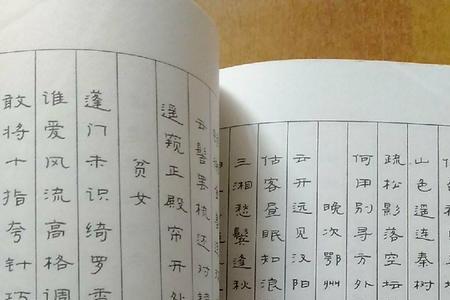 山色遥连秦树
疏松影落空坛
何用别寻方外
晚次鄂州
云开远见汉阳
估客昼眠知浪
三湘愁鬓逢秋
云髻罢梳还对
遥窥正殿帘开处
贫女
蓬门未识绮罗香
谁爱风流高格调
敢将十指夸针巧